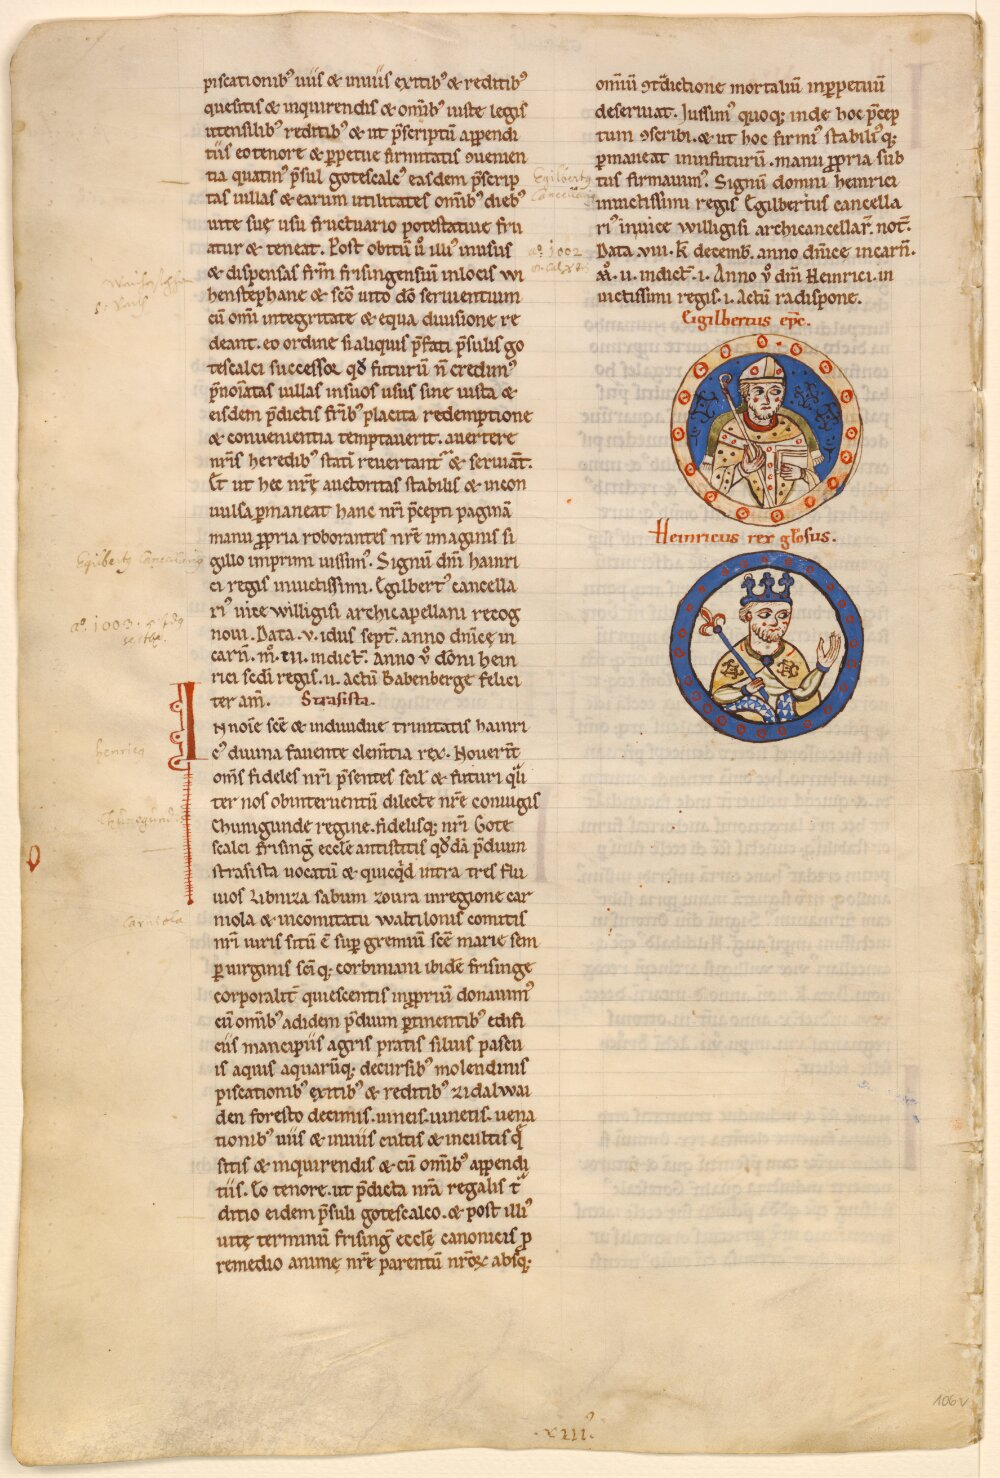 piscationib᾽ uiis & inuiis exitib᾽ & redditib᾽
quesitis & inquirendis & om̅ib᾽ iuste legis
utensilib᾽ redditib᾽ & ut p̅scriptu̅ appendi
tiis eo tenore & ꝑpetue firmitatis ꝯuenien
tia quatin᾽ p̅sul gotescalc᾽ easdem p̅scrip
tas uillas & earum utilitates om̅ib᾽ dieb᾽
uite suę usu fructuario potestatiue fru
atur & teneat. Post obitu̅ u̅o illi᾽ in usus
& dispensas fr̅m frisingensiu̅ in locis wi
henstephane & sc̅o uito d̅o seruientium
cu̅ om̅i integritate & equa diuisione re
deant. eo ordine si aliquis p̅fati p̅sulis go
tescalci successor qđ futuru̅ n̅ credim᾽
p̅no̅iatas uillas in suos usus sine iusta &
eisdem p̅dictis fr̅ib᾽ placita redemptione
& conuenientia temptauerit. auertere
nr̅is heredib᾽ stati̅ reuertant᾽ & seruia̅t.
Et ut hec nr̅ę auctoritas stabilis & incon
uulsa ꝑmaneat hanc nr̅i p̅cepti pagina̅
manu ꝓpria roborantes nr̅e imaginis si
gillo imprimi iussim᾽. Signu̅ dn̅i hainri
ci regis inuictissimi. Egilbert᾽ cancella
ri᾽ uice willigisi archicapellani recog
noui. Data. v. idus sept̅. anno dn̅icę in
carn̅. m̅. III. indict̅. Anno u̅o do̅ni hein
rici sc̅di regis. ii. actu̅ Babenberge felici
ter am̅. Strasista.
In no̅ie sc̅e & indiuidue trinitatis hainri
c᾽ diuina fauente clem̅tia rex. Nouerit̅
om̅s fideles nr̅i p̅sentes scil̅ & futuri qli
ter nos ob interuentu̅ dilecte nr̅e coniugis
Chunigunde regine. fidelisq; nr̅i Gote
scalci frising̅ eccl̅e antistitis qđda̅ p̅dium
strasista uocatu̅ & quicq̅d intra tres flu
uios Libniza sabum zoura in regione car
niola & in comitatu waltilonis comitis
nr̅i iuris situ̅ e̅ suꝑ gremiu̅ sc̅e marie sem
ꝑ uirginis sc̅iq; corbiniani ibide̅ frisinge
corporalit̅ quiescentis in ꝓpriu̅ donauim᾽
cu̅ om̅ib᾽ ad idem p̅dium ꝑtinentib᾽ edifi
ciis mancipiis agris pratis siluis pascu
is aquis aquaru̅q; decursib᾽ molendinis
piscationib᾽ exitib᾽ & reditib᾽ zidalwai
den foresto decimis. uineis. uinetis. uena
tionib᾽ uiis & inuiis cultis & incultis q̅
sitis & inquirendis & cu̅ om̅ib᾽ appendi
tiis. Eo tenore. ut p̅dicta nr̅a regalis t᾽
ditio eidem p̅suli gotescalco. & post illi᾽
uitę terminu̅ frising̅ eccl̅ę canonicis ꝓ
remedio animę nr̅e parentu̅ nr̅oꝝ absq;
omiu̅ ꝯt᾽dictione mortaliu̅ in ꝑpetuu̅
deseruiat. Iussim᾽ quoq; inde hoc p̅cep
tum ꝯscribi. & ut hoc firmi᾽ stabili᾽q;
ꝑmaneat in infuturu̅. manu ꝓpria sub
tus firmauim᾽. Signu̅ domni heinrici
inuictissimi regis Egilbertus cancella
ri᾽ in uice willigisi archicancellar̅. not̅.
Data. viii. k̅ decemb̅. anno dn̅icę incarn̅.
m̅. ii. indict̅. i. Anno u̅o dn̅i Heinrici. in
uictissimi regis. i. Actu̅ radispone.
Egilbertus ep̅c.
Heinricus rex gl̅osus.
Egilbertus
Cancellarius
a.º 1002
Egilbertus Cancellarius
a.º 1003.
henricus
Chunegundis
Carniola
.XIII.
106v